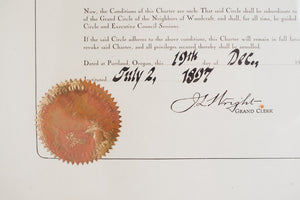 Now, the Conditions of this Charter are such, That said Circle shall be subordinate to
of the Grand Circle of the Neighbors of Woodcraft, and shall, for all time, be guided
Circle and Executive Council Sessions.
If the said Circle adheres to the above conditions, this Charter will remain in full
revoke said Charter, and all privileges secured thereby shall be annulled.
Dated at Portland, Oregon, this 19th day of Dec.,
Instituted July 2, 1897
J L Wright
GRAND CLERK